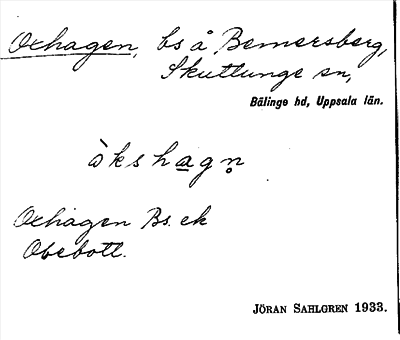 Oxhagen, bs å Bemersberg,
Skuttunge sn,
Bälinge hd, Uppsala län.
òkshagn̥
Oxhagen Bs. ek
Obebott.
JÖRAN SAHLGREN 1933.